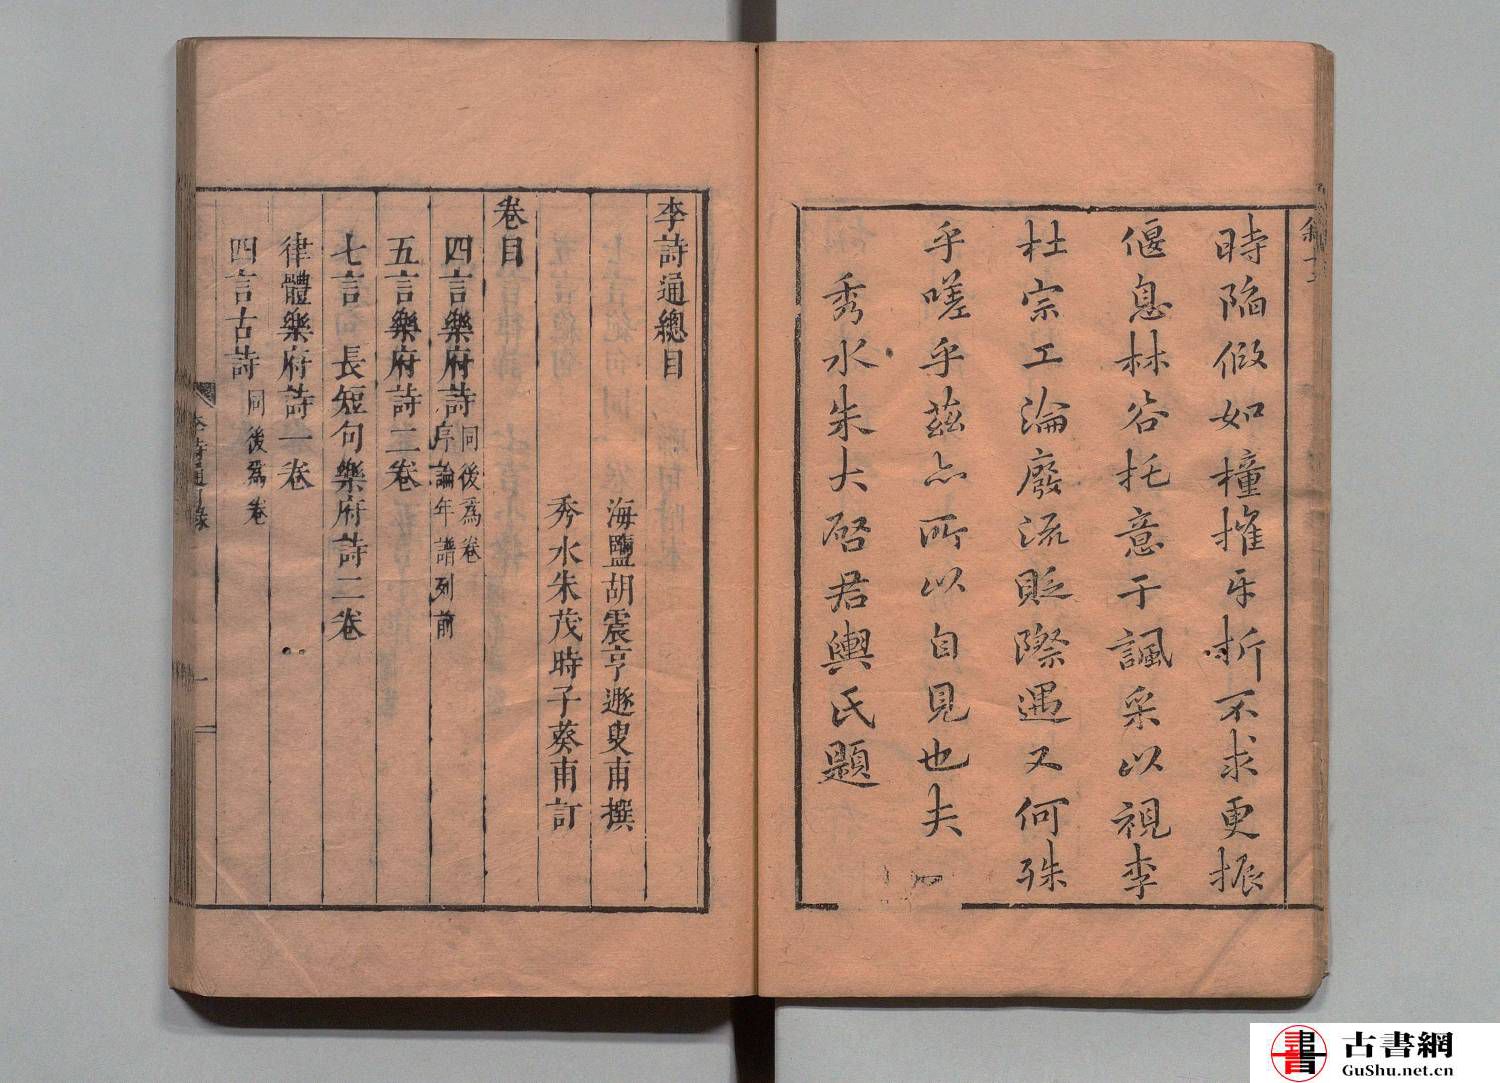 時陷假如撞摧牙折不求更振
偃息林谷托意于諷采以視李
杜宗工淪廢流貶際遇又何殊
乎嗟乎茲亦所以自見也夫
秀水朱大啓君輿氏題
李詩通總目
海鹽胡震亨遯叟甫撰
秀水朱茂時子葵甫訂
卷目
四言樂府詩同後爲卷序論年譜列前
五言樂府詩二卷
七言長短句樂府詩二卷
律體樂府詩一卷
四言古詩同後爲卷
李詩通目錄
一
古書網
GuShu.net.cn